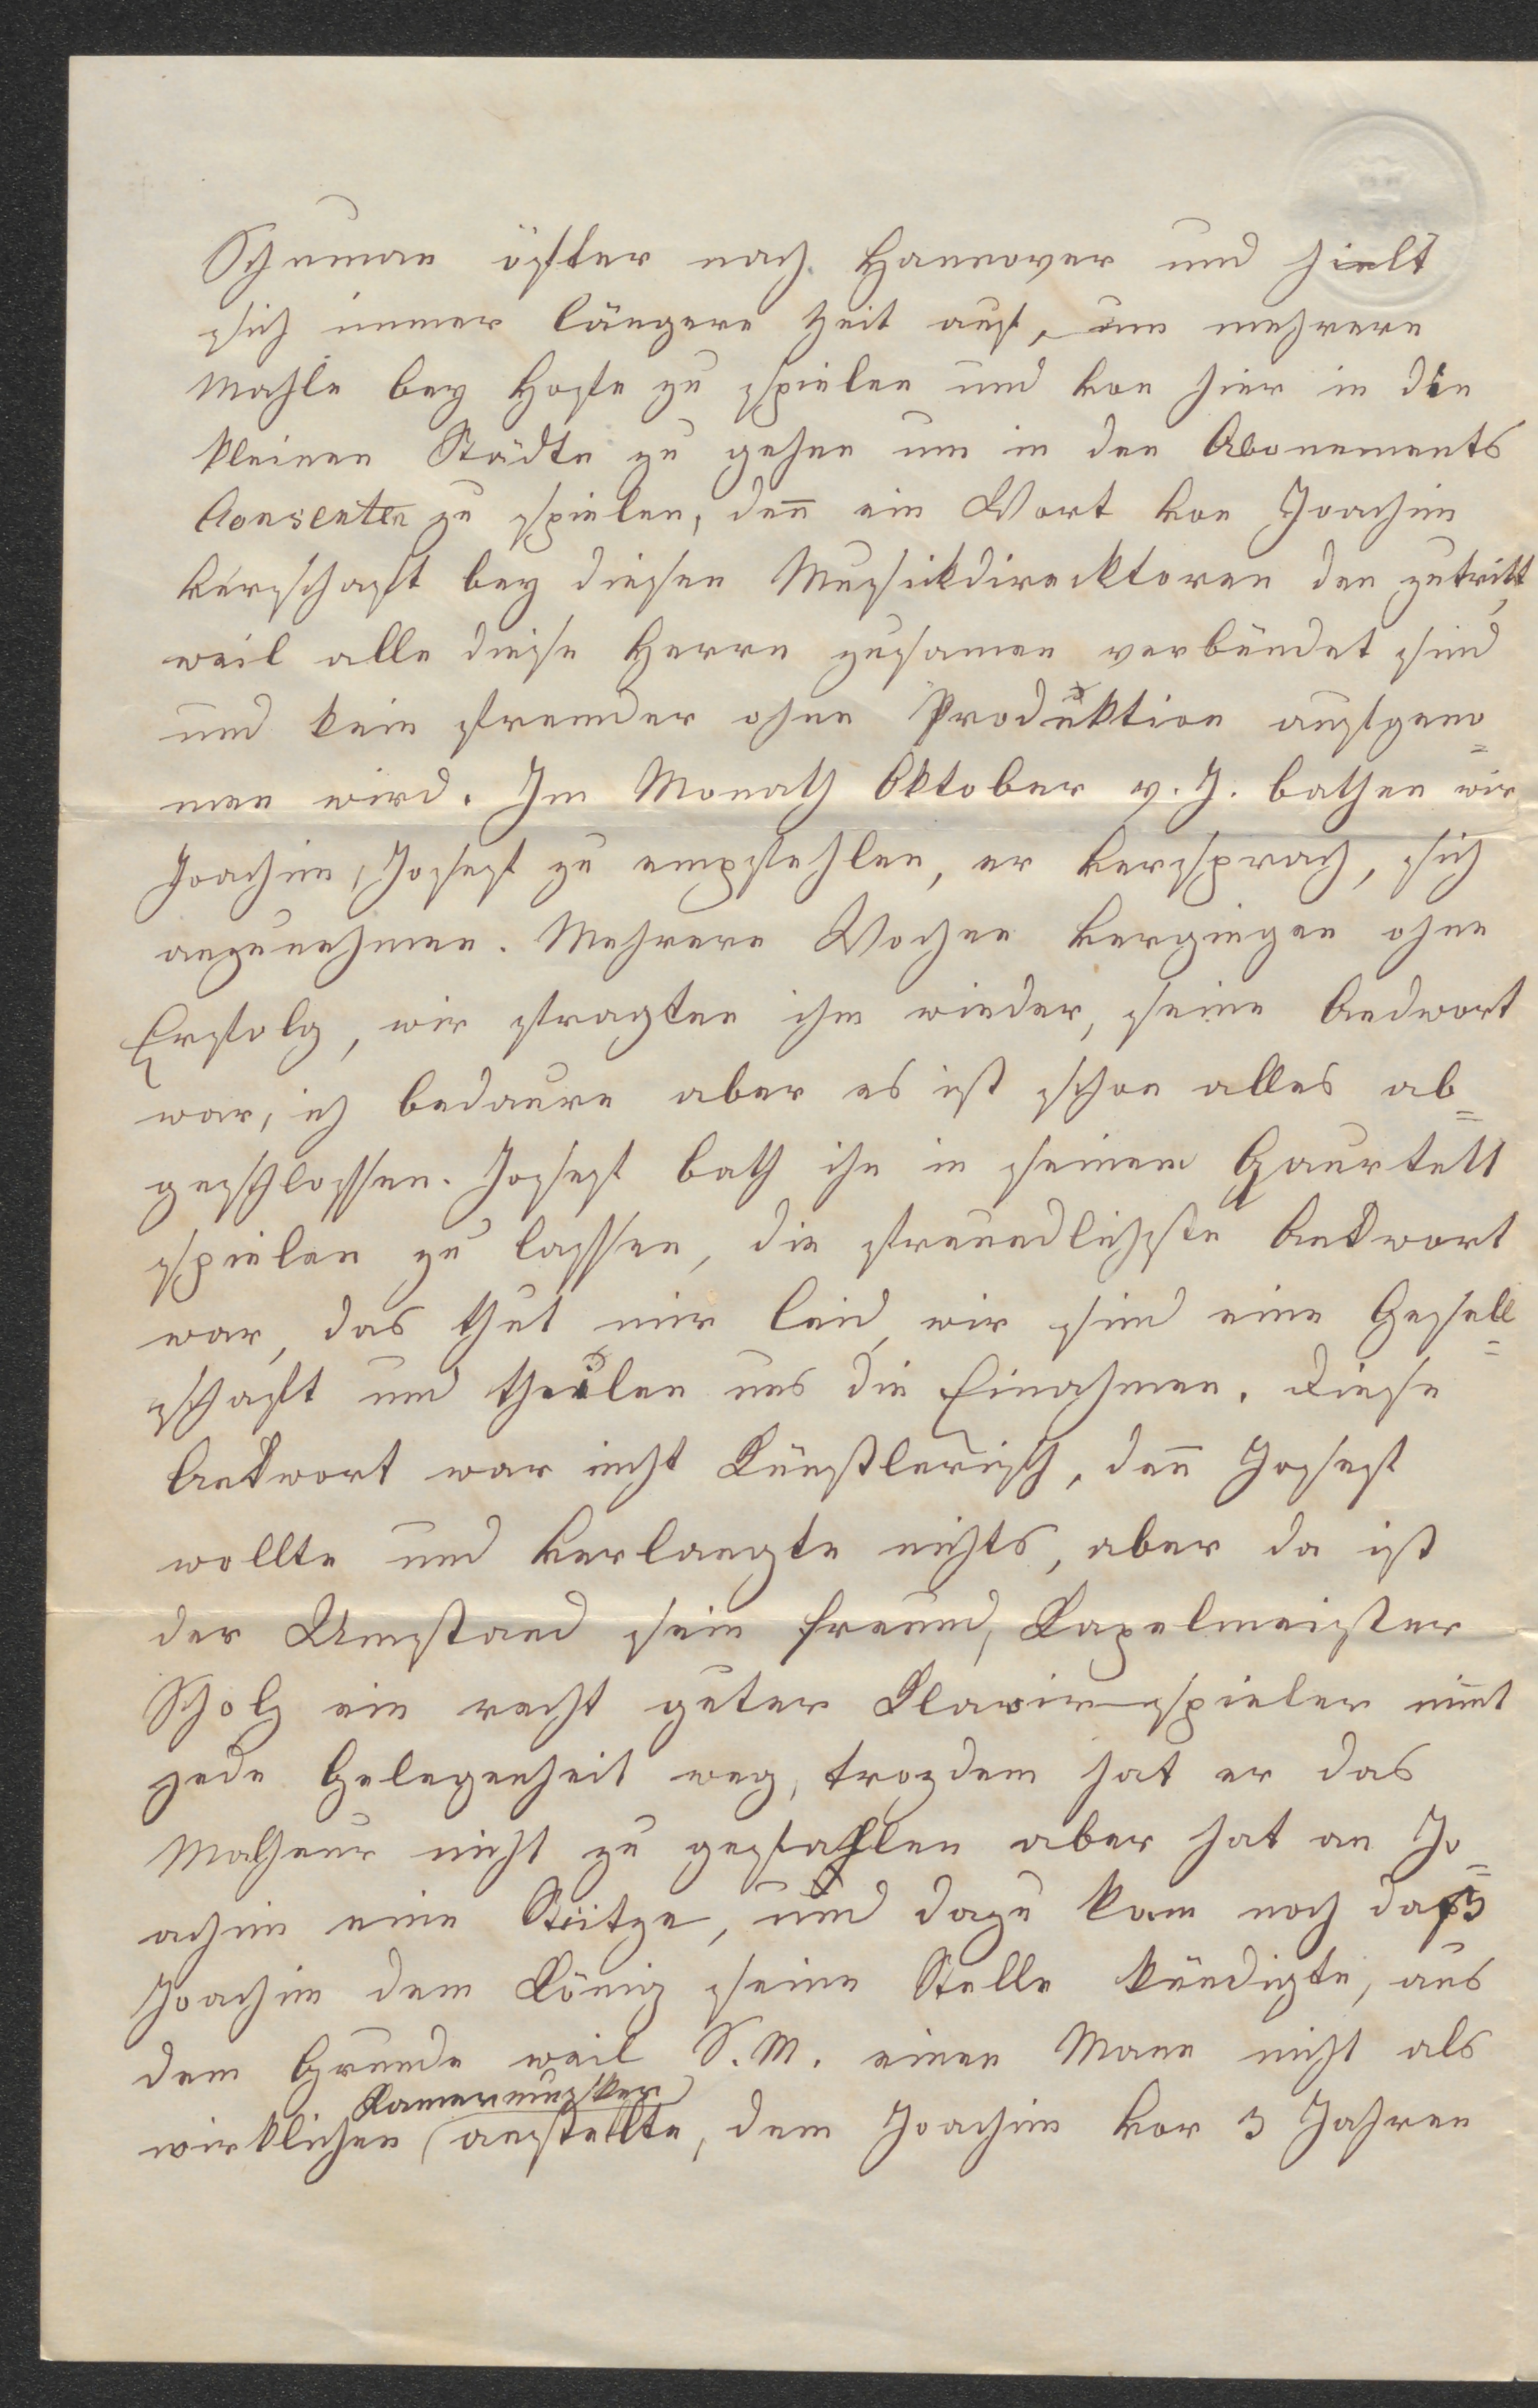 Schuman öfter nach Hannover und hielt
sich immer längere Zeit auf, um mehrere
Mahle bey Hofe zu spielen und von hier in die
kleinen Städte zu gehen um in den Abonements
Consenten zu spielen, den̄ ein Wort von Joachim
verschaft bey diesen Musickdirecktoren den zutritt,
weil alle diese Herrn zusamen verbündet sind
und kein fremder ohne Produktion aufgeno=
men wird. Im Monath Oktober v. J. bathen wir
Joachim, Josef zu empfehlen, er versprach, sich
anzunehmen. Mehrere Wochen vergingen ohne
Erfolg, wir fragten ihn wieder, seine Andwort
war, ich bedaure aber es ist schon alles ab=
geschlossen. Josef bath ihn in seinem Quartett
spielen zu lassen, die freundlichste Antwort
war, das thut mir leid, wir sind eine Gesell=
schaft und theilen uns die Einahmen. Diese
Antwort war nicht Künstlerisch, den̄ Josef
wollte und verlangte nichts, aber da ist
der Umstand sein Freund, Kapelmeister
Scholz ein recht guter Klavierspieler nim̄t
jede Gelegenheit weg, trozdem hat er das
Malheur nicht zu gefahlen aber hat an Jo=
achim eine Stütze, und dazu kam noch daß
Joachim dem König seine Stelle kündigte, aus
dem Grunde weil S. M. einen Mann nicht als
Kamermusker
wirklichen anstellte, dem Joachim vor 3 Jahren